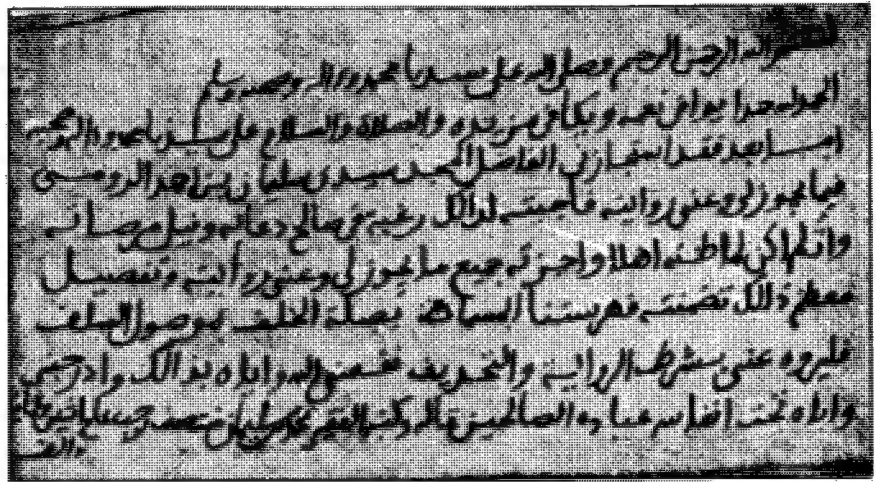 بسم الله الرحمن الرحيم وصلى الله على سيدنا محمد وءاله وصحبه وسلم
الحمد لله حمدا يوافي نعمه ويكافئ مزيده والصلاة والسلام على سيدنا محمد وءاله وصحبه
اما بعد فقد استجازني الفاضل المجد سيدي سليمان بن احمد
فيما يجوز لي وعني روايته فاجبته لذالك رغبة في صالح دعائه ونيل مرضاته
وان لم اكن لما ظنه اهلا واجزته جميع ما يجوز لي وعني روايته وتفصيل
معظم ذالك تضمنته فهرستنا المسماة بصلة الخلف بموصول السلف
فليروه عني بشرط الرواية والتحديث نفعني الله واياه بذالك وادرجني
واياه تحت انفاس عباده الصالحين قاله وكتبه الفقير محمد بن سليمان
والف